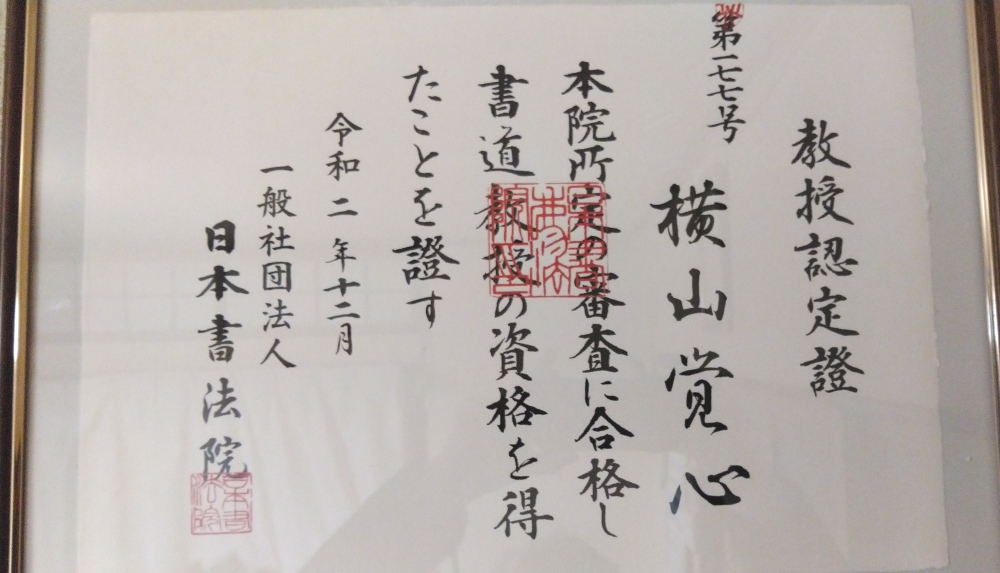 教授認定證
第一七七号
横山覚心
本院所定の審査に合格し
書道教授の資格を得
たことを證す
令和二年十二月
一般社団法人
日本書法院
日本書法院